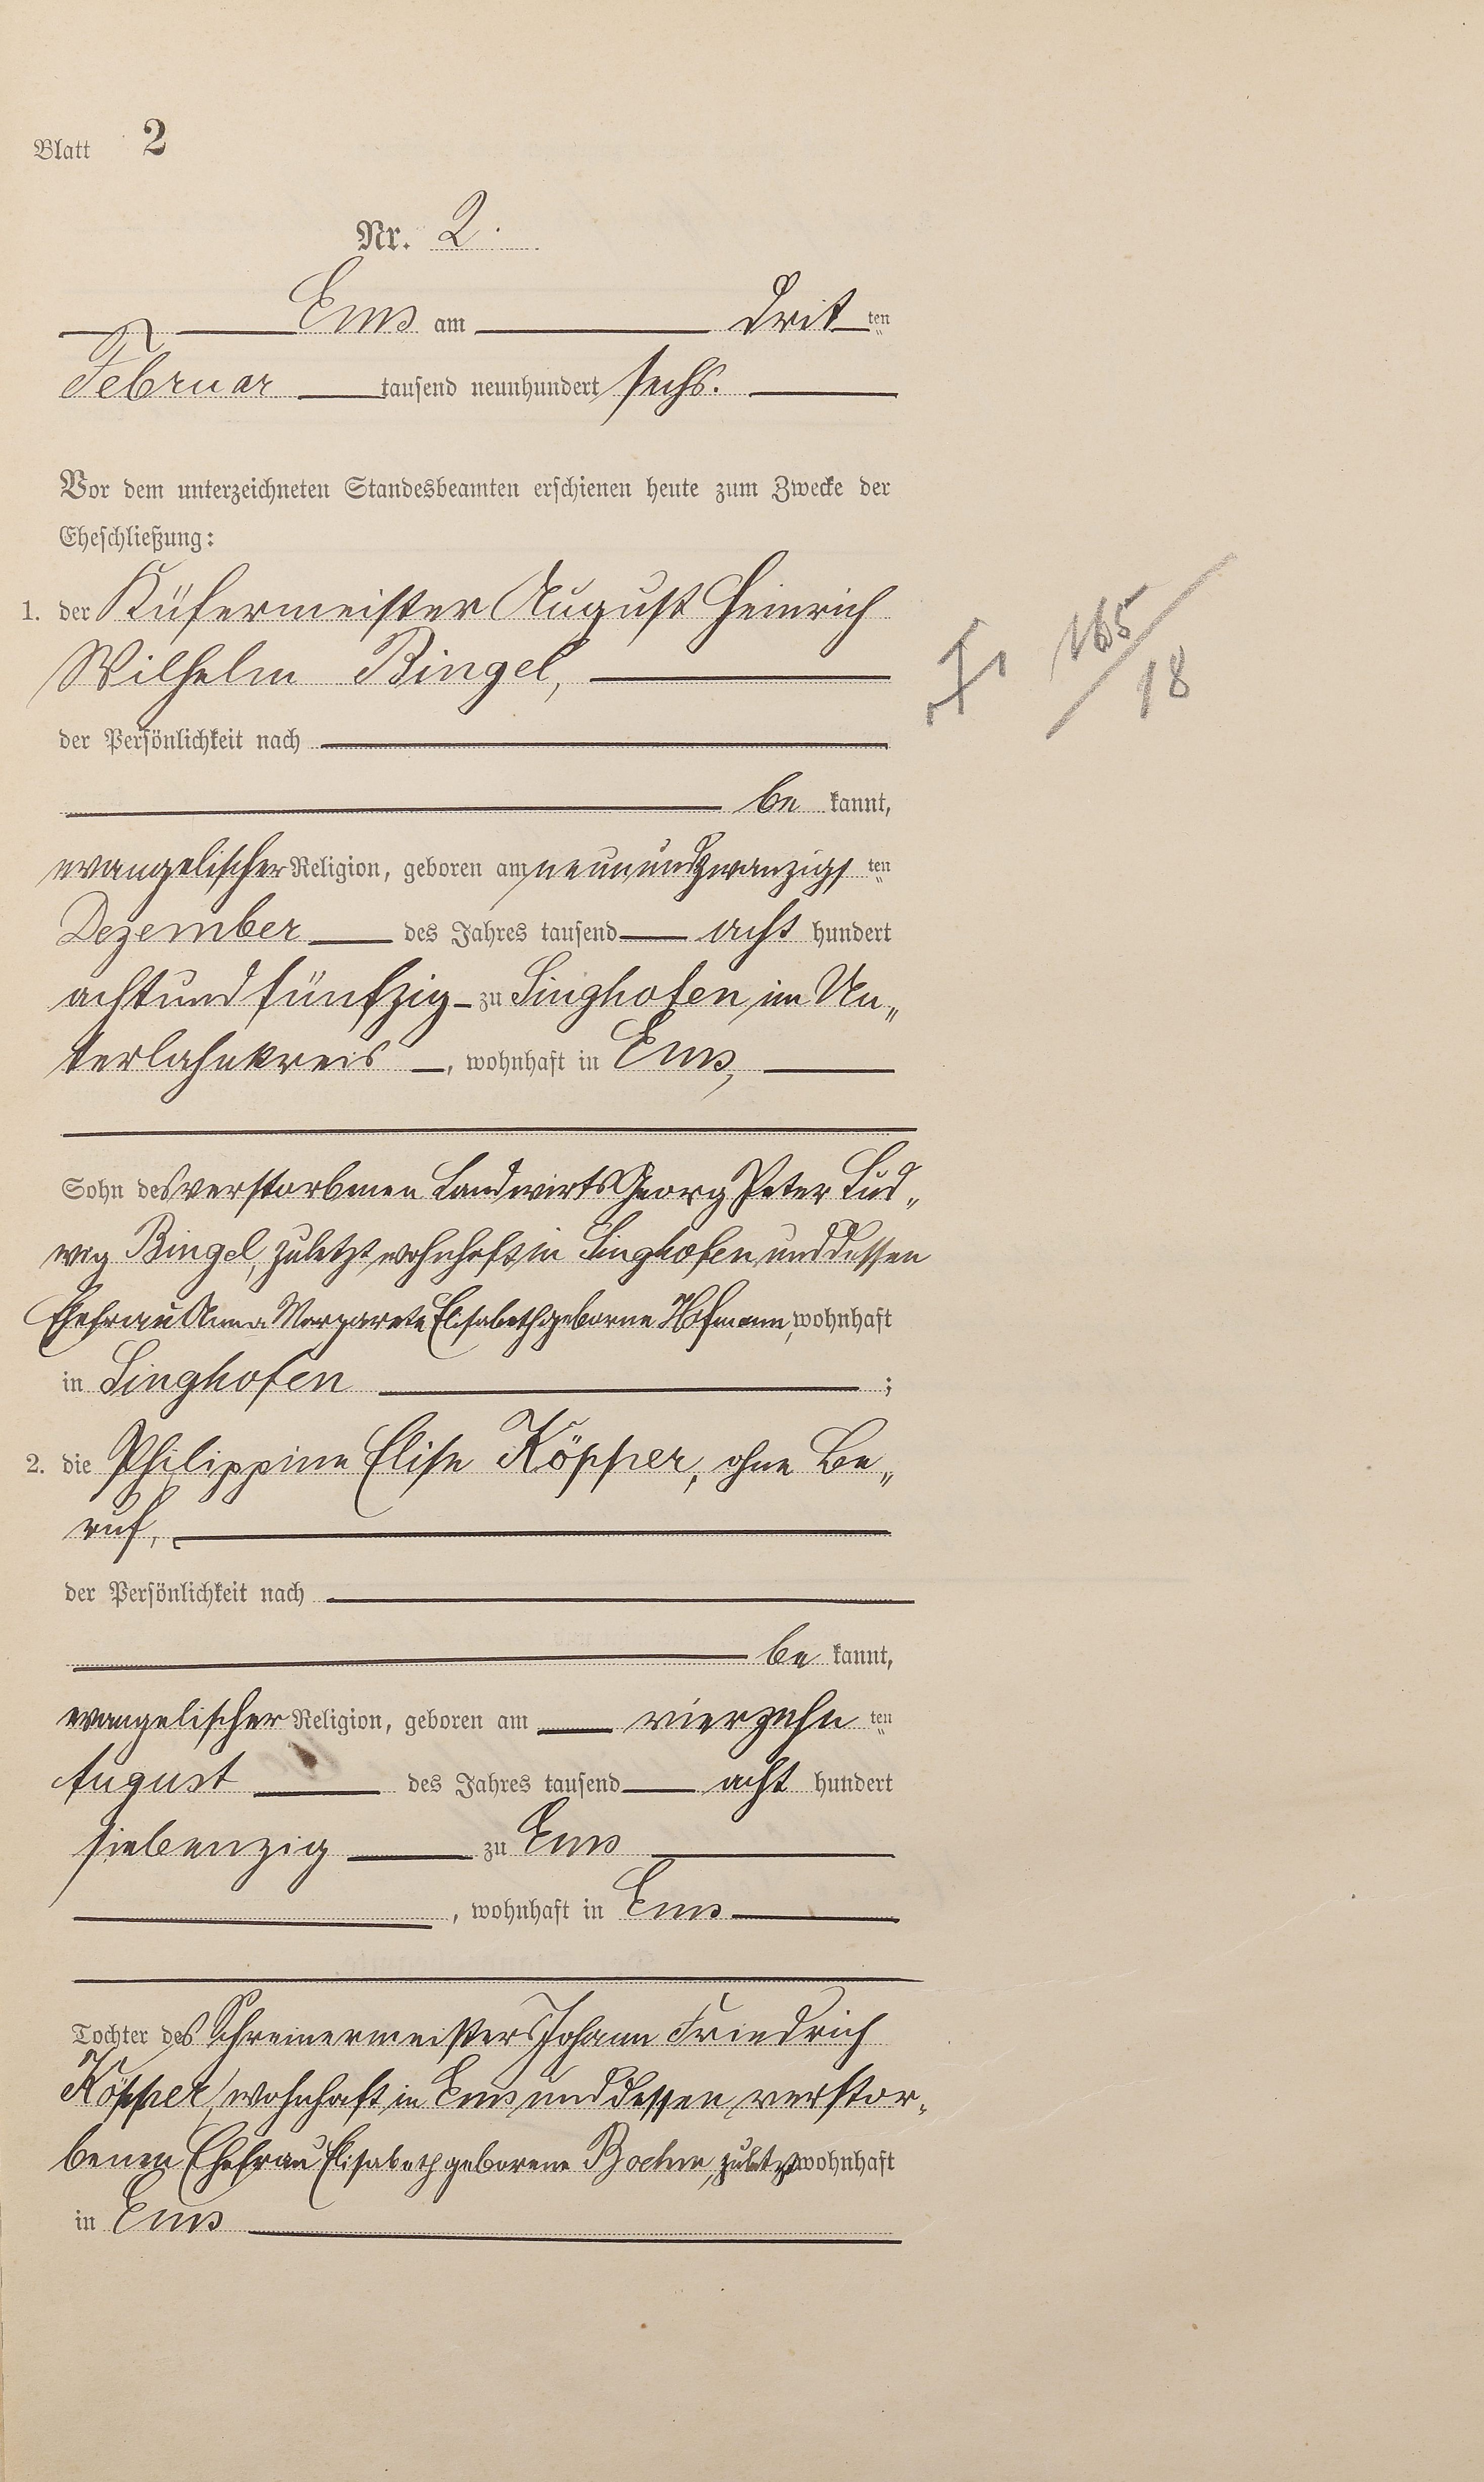 Blatt 2
Nr. 2.
Ems am Drit ten
Februar tausend neunhundert sechs.
Vor dem unterzeichneten Standesbeamten erschienen heute zum Zwecke der
Eheschließung:
1. der Küfermeister August Heinrich
Wilhelm Bingel,
165
18
der Persönlichkeit nach
be kannt,
evangelischer Religion, geboren am neunundzwanzigs ten
Dezember des Jahres tausend acht hundert
achtundfünfzig zu Singhofen, im Un„
terlahnkreis, wohnhaft in Ems,
Sohn des verstorbenen Landwirts Georg Peter Lud„
wig Bingel, zuletzt wohnhaft in Singhofen und dessen
Ehefrau Anna Margarete Elisabeth geborne Hofmann, wohnhaft
in Singhofen ;
2. die Philippine Elise Köpper, ohne Be„
ruf,
der Persönlichkeit nach
be kannt,
evangelischer Religion, geboren am vierzehn ten
August des Jahres tausend acht hundert
siebenzig zu Ems
, wohnhaft in Ems
Tochter des Schreinermeisters Johann Friedrich
Köpper, wohnhaft in Ems und dessen verstor„
benen Ehefrau Elisabeth geborene zuletzt wohnhaft
in Ems